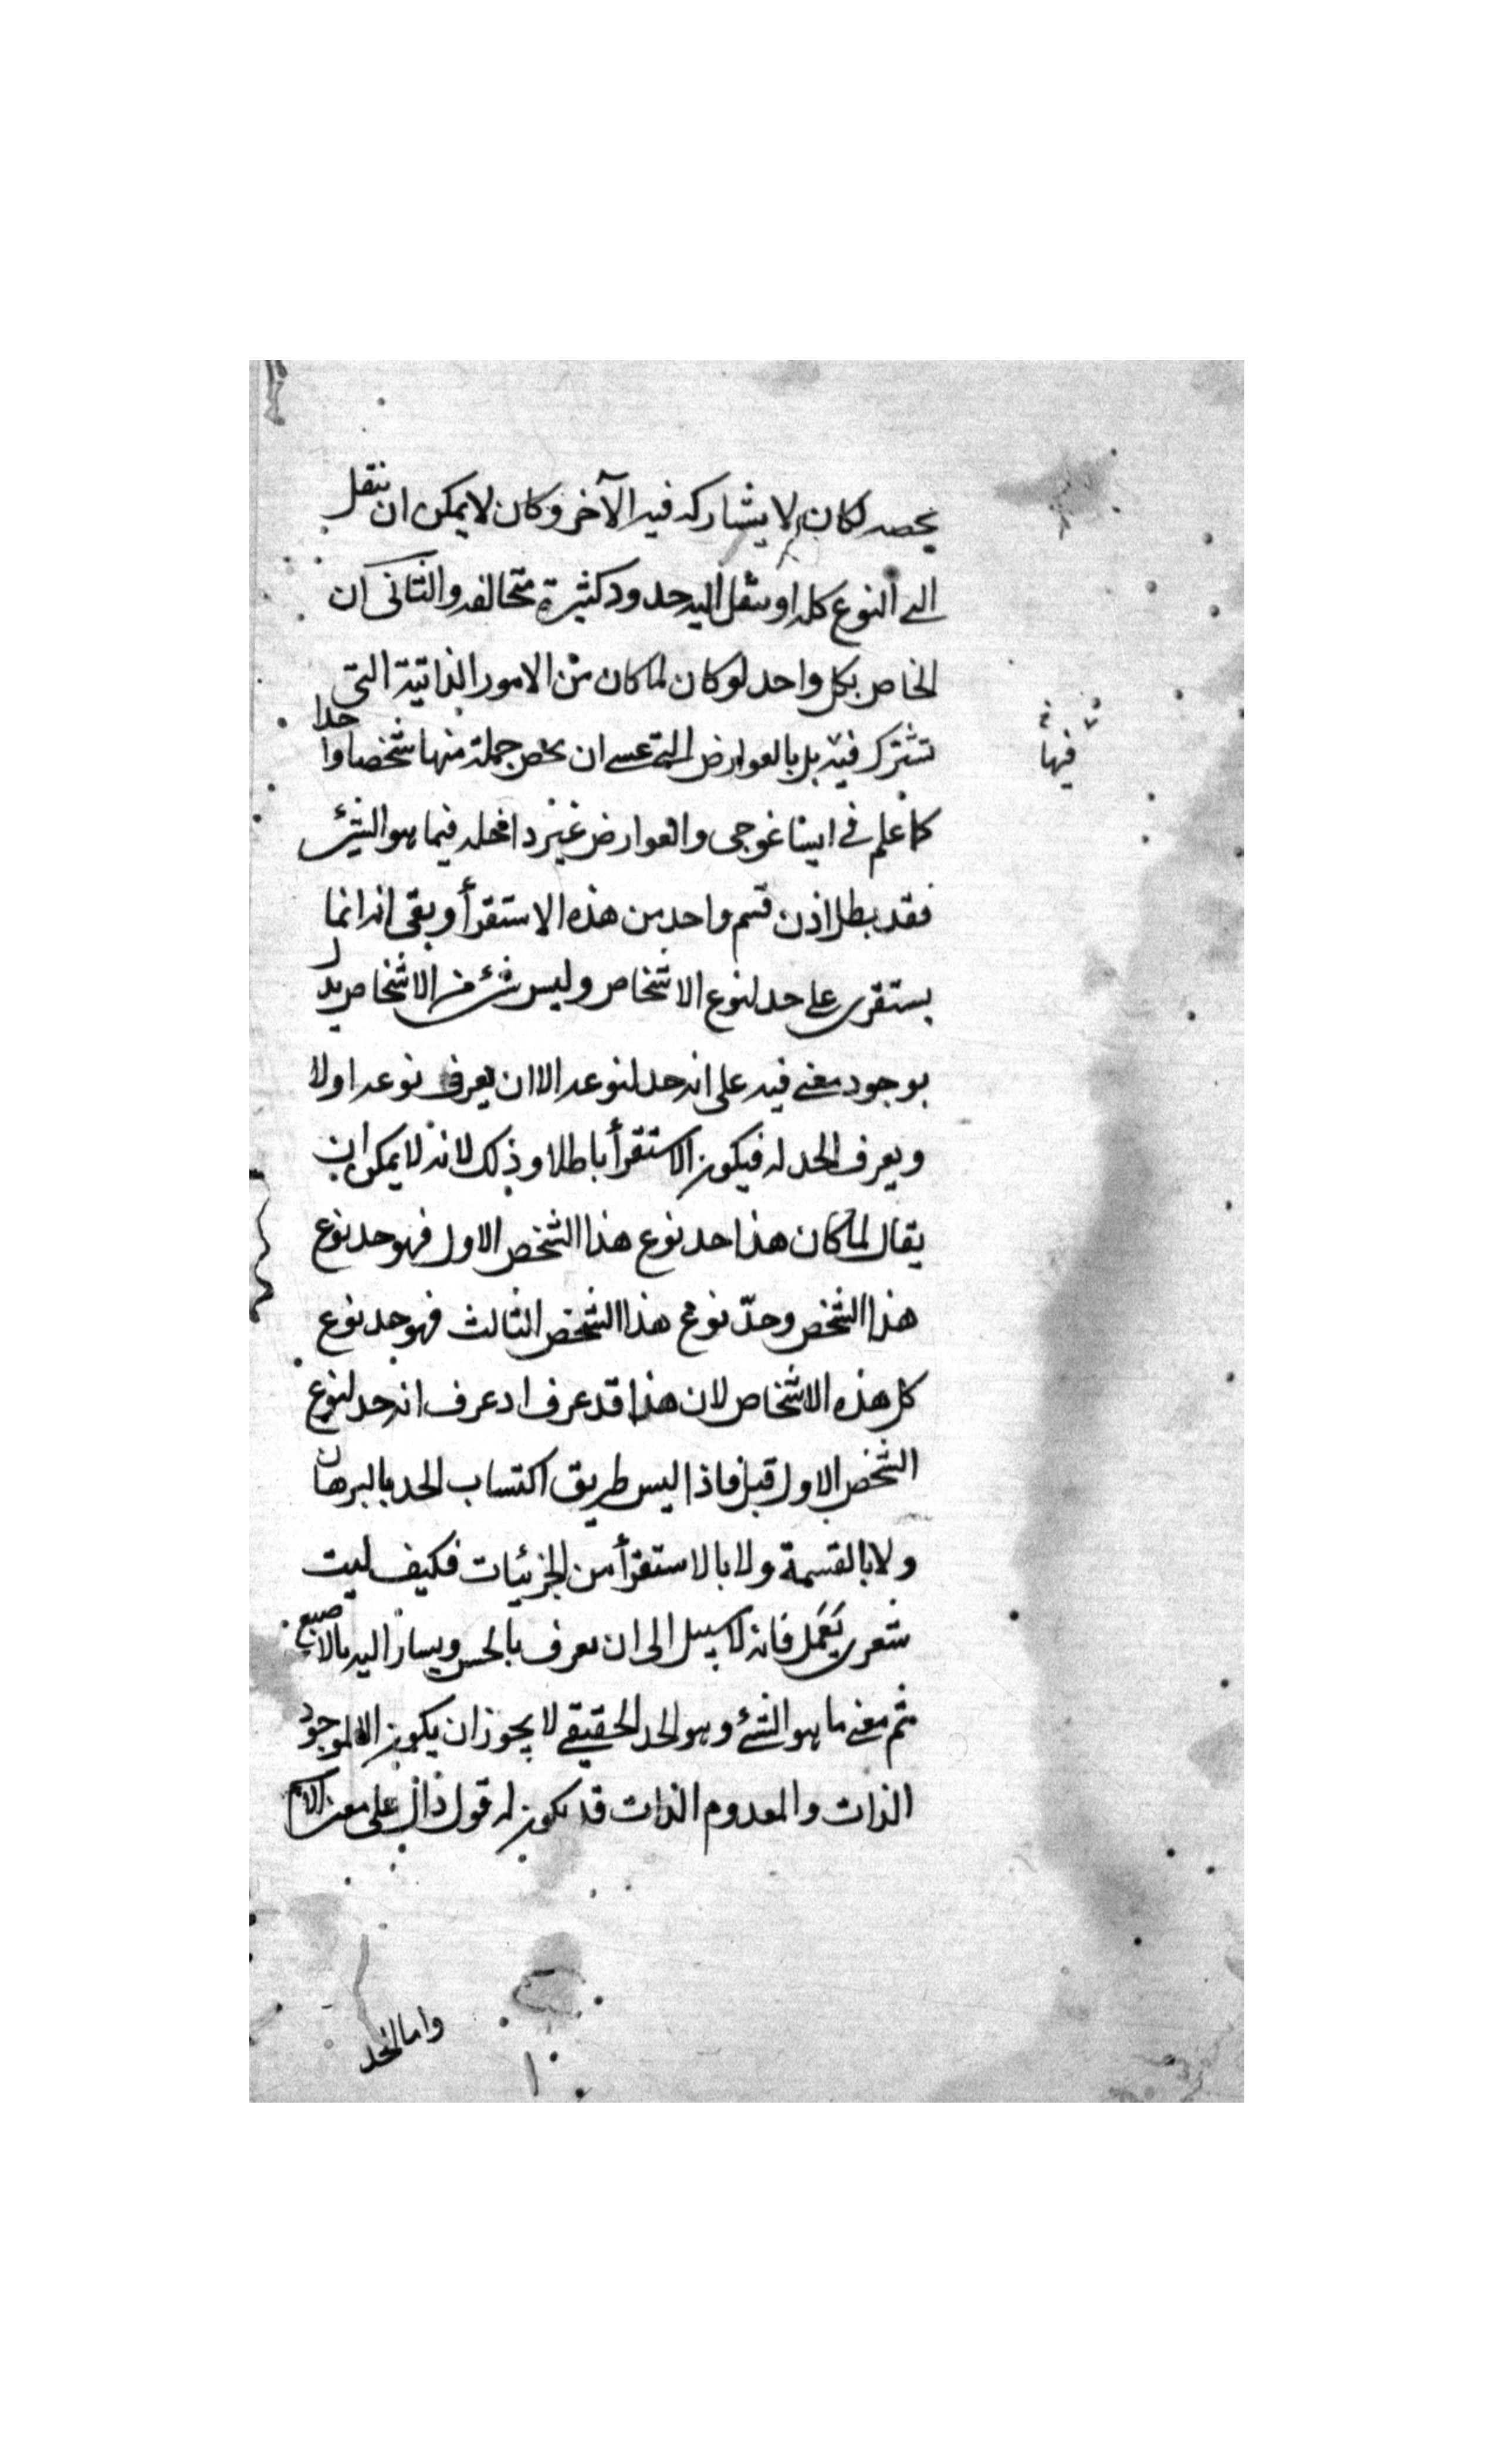 يخصه لكان لا يشاركه فيه الآخر وكان لا يمكن ان ينقل
الى النوع كله او ينقل اليه حدود كثيرة متخالفه والثانى ان
الخاص بكل واحد لو كان لما كان من الامور الذاتية التى
تشترك فيه بل بالعوارض التى عسى ان يخص جملة منها شخصا واحدا
فيها
كما علم فى ايساغوجى والعوارض غير داخله فيما هو الشئ
فقد بطل اذن قسم واحد من هذه الاستقرأ وبقى انه انما
يستقرى على حد لنوع الاشخاص وليس شئ من الاشخاص يدل
بوجود معنى فيه على انه حد لنوعه الا ان يعرف نوعه اولا
ويعرف الحد له فيكون الاستقرأ باطلا وذلك لانه لا يمكن ان
يقال لما كان هذا حد نوع هذا الشخص الاول فهو حد نوع
هذا الشخص وحدّ نوع هذا الشخص الثالث فهو حد نوع
كل هذه الاشخاص لان هذا قد عرف اد عرف انه حد لنوع
الشخص الاول قبل فاذا ليس طريق اكتساب الحد بالبرهان
ولا بالقسمة ولا بالاستقرأ من الجزئيات فكيف ليت
شعرى يَعْمَل فانه لا سبيل الى ان يعرف بالحس ويشار اليه بالاصبع
ثم معنى ما هو الشئ وهو الحد الحقيقى لا يجوز ان يكون الا لموجود
الذات والمعدوم الذات قد يكون له قول دال على معنى الاسم
واما الحد